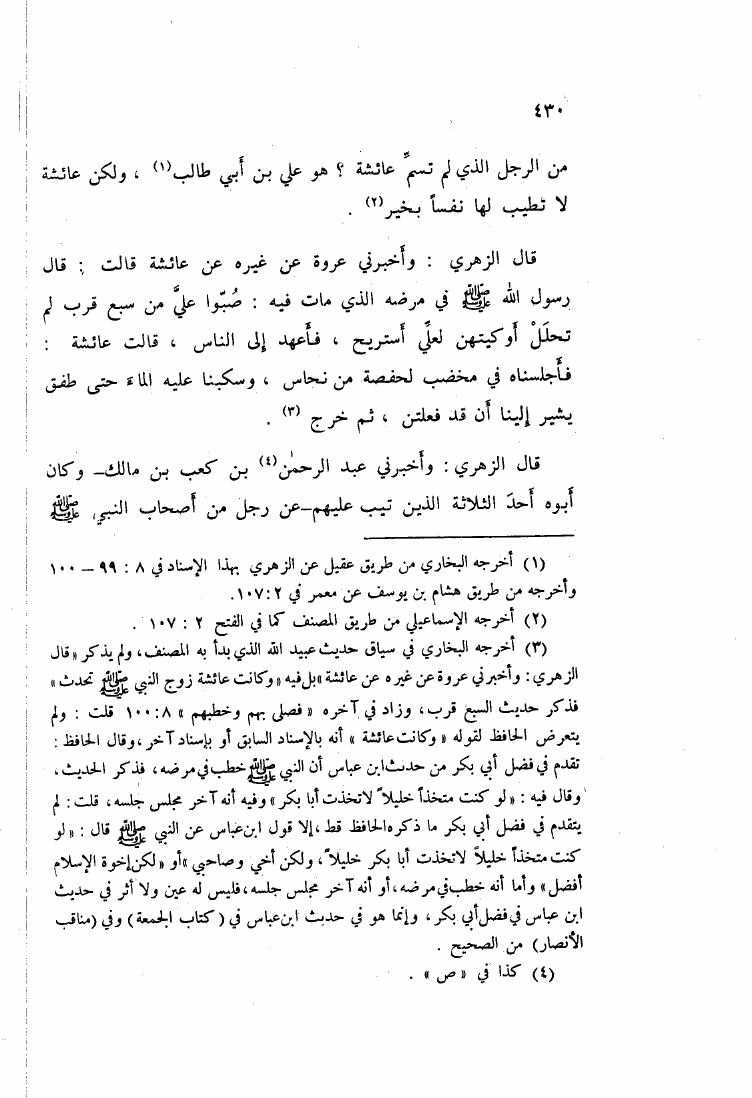 ٤٣٠
من الرجل الذي لم تسمِّ عائشة ؟ هو علي بن أَبي طالب(١) ، ولكن عائشة
لا تطيب لها نفساً بخير(٢) .
قال الزهري : وأَخبرني عروة عن غيره عن عائشة قالت : قال
رسول الله ﷺ في مرضه الذي مات فيه : صُبّوا عليَّ من سبع قرب لم
تحلَلْ أَوكيتهن لعلِّي أَستريح ، فأَعهد إلى الناس ، قالت عائشة :
فأَجلسناه في مخضب لحفصة من نحاس ، وسكبنا عليه الماءَ حتى طفق
يشير إلينا أَن قد فعلتن ، ثم خرج (٣) .
قال الزهري : وأَخبرني عبد الرحمٰن(٤) بن كعب بن مالك – وكان
أَبوه أَحدَ الثلاثة الذين تيب عليهم – عن رجل من أَصحاب النبي ﷺ
(١) أخرجه البخاري من طريق عقيل عن الزهري بهذا الإسناد في ٨ : ٩٩ – ١٠٠
وأخرجه من طريق هشام بن يوسف عن معمر في ٢ : ١٠٧.
(٢) أخرجه الإسماعيلي من طريق المصنف كما في الفتح ٢ : ١٠٧ .
(٣) أخرجه البخاري في سياق حديث عبيد الله الذي بدأ به المصنف، ولم يذكر « قال
الزهري : وأخبرني عروة عن غيره عن عائشة » بل فيه « وكانت عائشة زوج النبي ﷺ تحدث »
فذكر حديث السبع قرب، وزاد في آخره « فصلى بهم وخطبهم » ٨ : ١٠٠ قلت : ولم
يتعرض الحافظ لقوله « وكانت عائشة » أنه بالإسناد السابق أو بإسناد آخر، وقال الحافظ :
تقدم في فضل أبي بكر من حديث ابن عباس أن النبي ﷺ خطب في مرضه، فذكر الحديث،
وقال فيه : « لو كنت متخذاً خليلاً لاتخذت أبا بكر » وفيه أنه آخر مجلس جلسه، قلت : لم
يتقدم في فضل أبي بكر ما ذكره الحافظ قط، إلا قول ابن عباس عن النبي ﷺ قال : « لو
كنت متخذاً خليلاً لاتخذت أبا بكر خليلاً، ولكن أخي وصاحبي » أو « لكن إخوة الإسلام
أفضل » وأما أنه خطب في مرضه، أو أنه آخر مجلس جلسه، فليس له عين ولا أثر في حديث
ابن عباس في فضل أبي بكر، وإنما هو في حديث ابن عباس في ( كتاب الجمعة ) وفي (مناقب
الأنصار) من الصحيح .
(٤) كذا في « ص » .